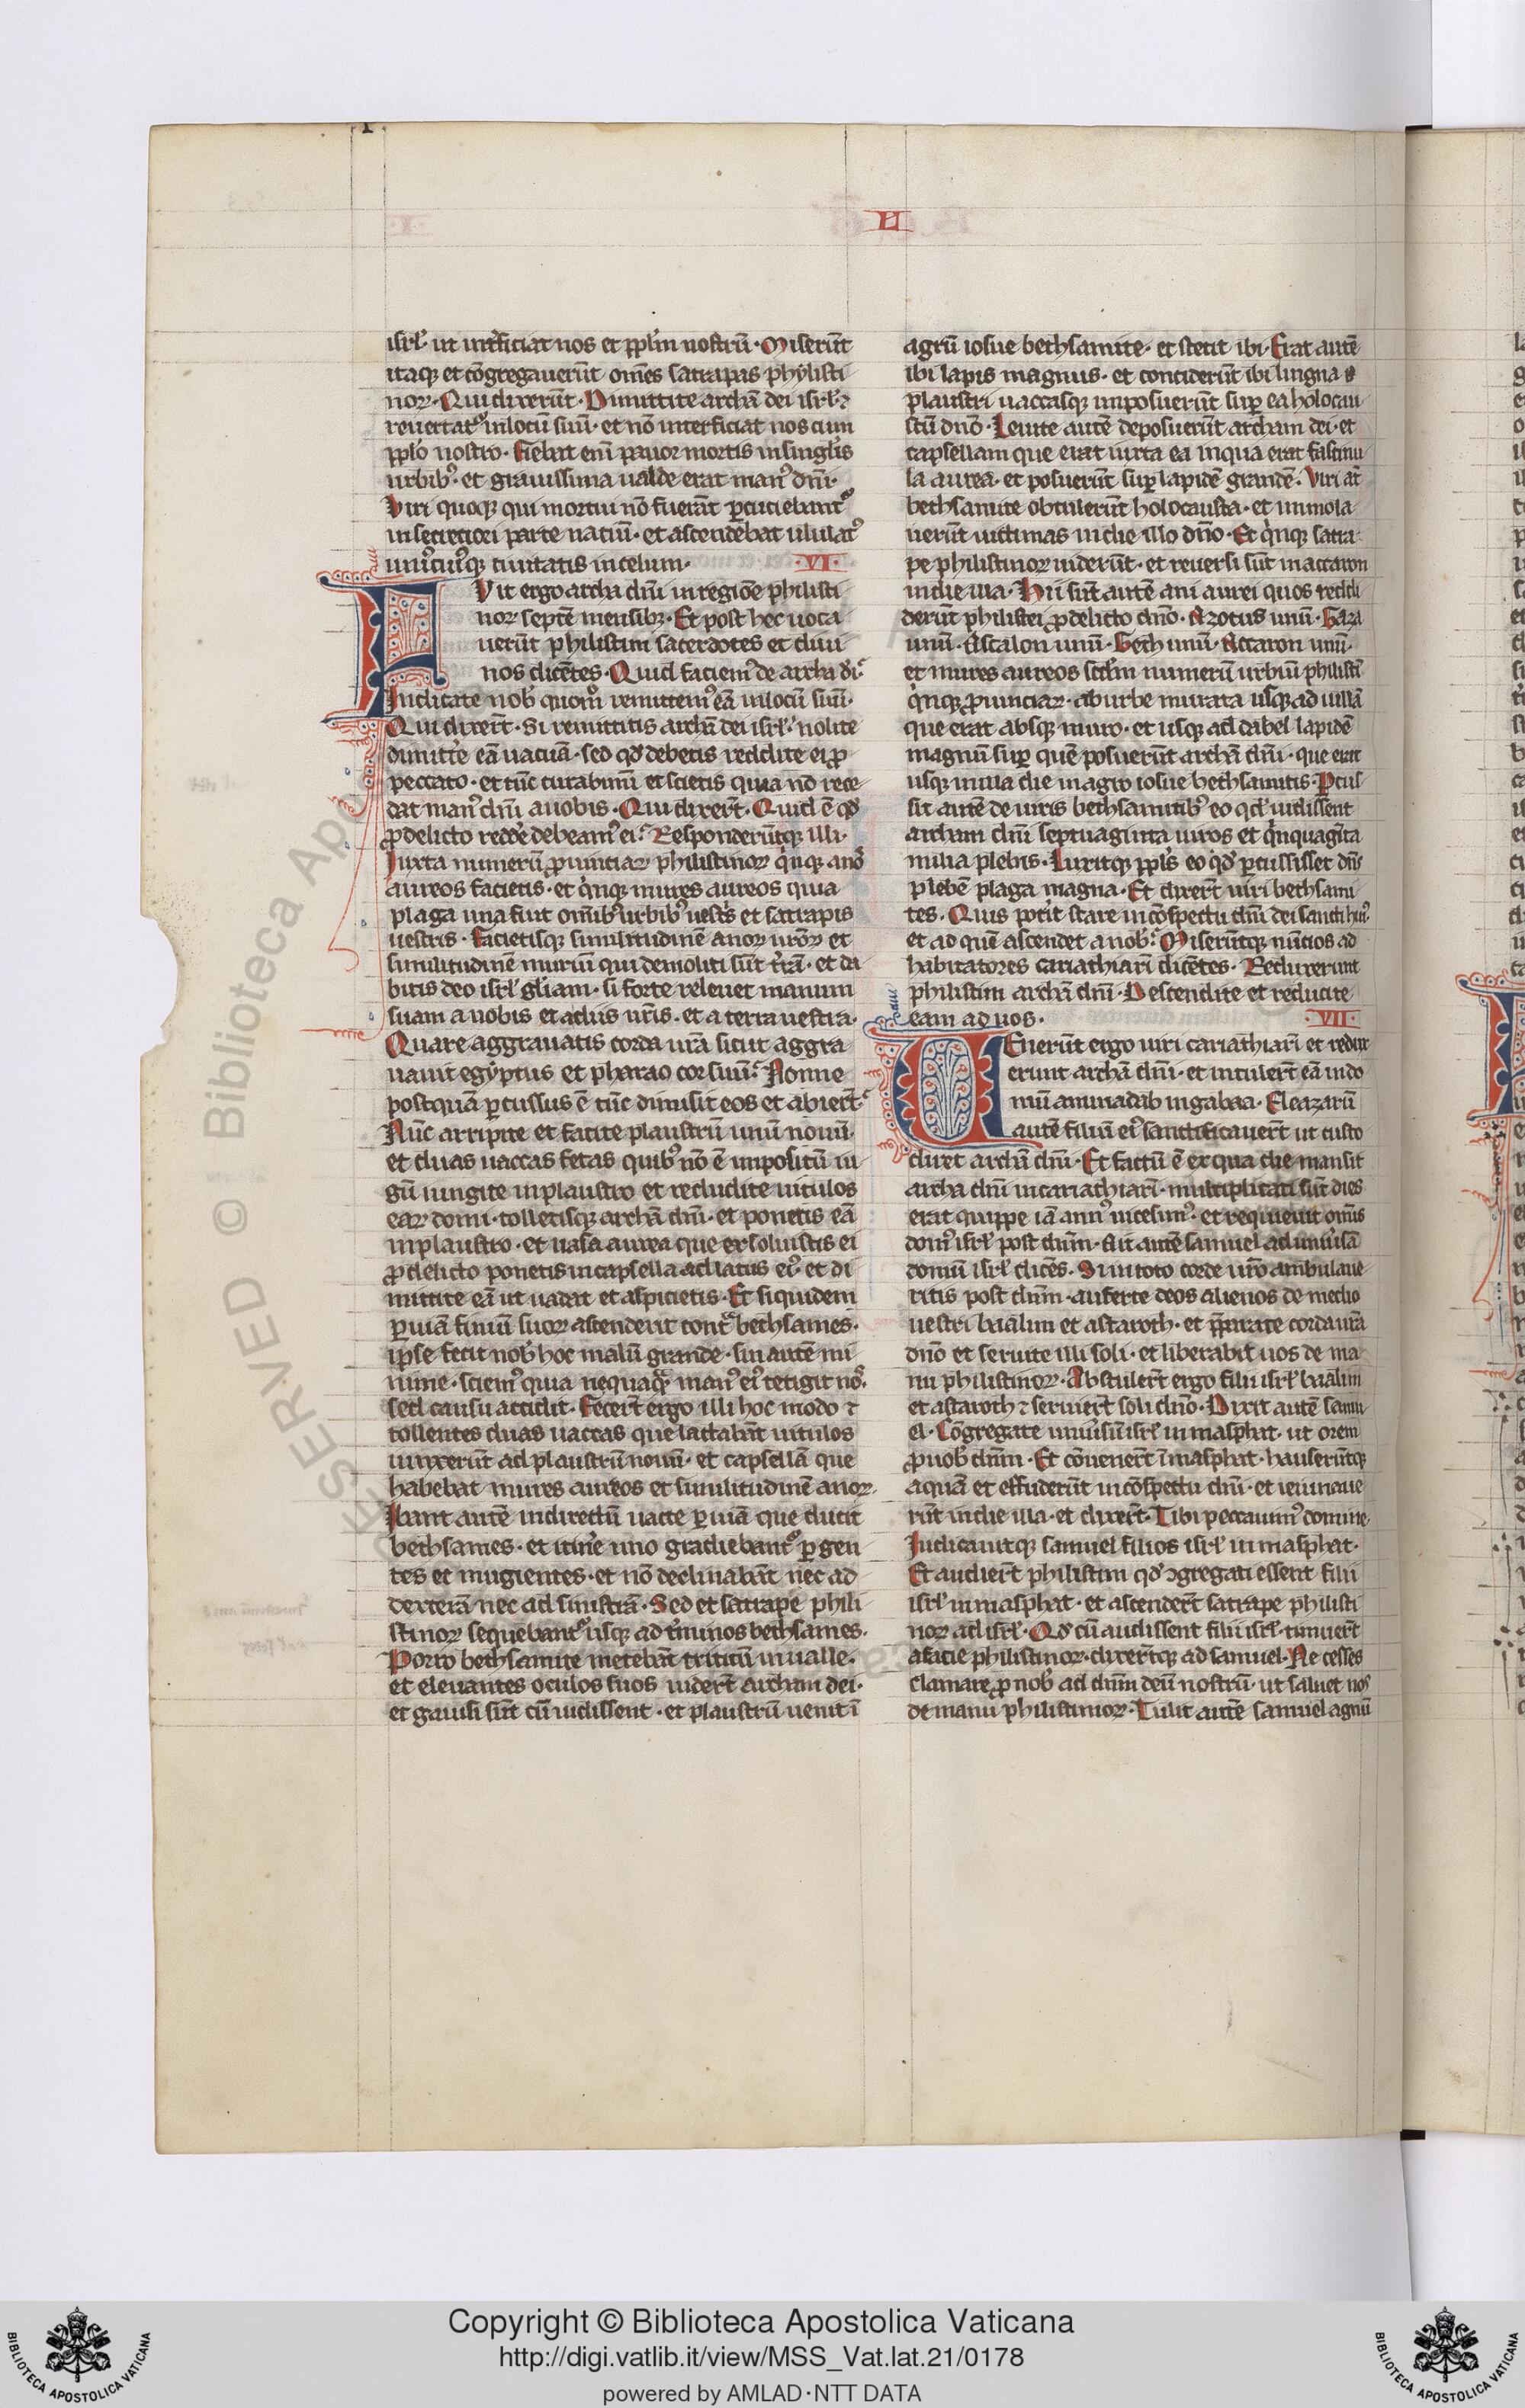 L
isrl̄· ut int̄ficiat nos et pplm̄ nostrū· Miserūt
itaqꝫ et cōgregauerūt om̄es satrapas phylisti
noꝝ· Qui dixerūt· Dimittite archā dei isrl̄·
reuertat᷒ in locū suū· et nō interficiat nos cum
pplo nostro· Fiebat eni᷒ pauor mortis in singl̄is
urbib᷒· et grauissima ualde erat man᷒ dn̄i·
Viri quoqꝫ qui mortui nō fuerāt ꝑcutiebant᷒
in secretiori parte natiū· et ascendebat ululat᷒
uni᷒cui᷒qꝫ ciuitatis in celum·
·VI·
Fuit ergo archa dn̄i in regiōe philisti
noꝝ septē mensibꝫ· Et post hec uoca
uerūt philistim sacerdotes et diui
nos dicētes· Quid faciem᷒ de archa dī·
Indicate nob̄ quom̄ remittem᷒ eā in locū suū·
Qui dixerūt· Si remittitis archā dei isrl̄ nolite
dimitt̄e eā uacuā· sed qd̄ debetis reddite ei ꝓ
peccato· et tūc curabimī et scietis quia nō rece
dat man᷒ dn̄i a uobis· Qui dixerūt· Quid ē qd̄
ꝓ delicto redd̄e debeam᷒ ei· Responderūtqꝫ illi·
Iuxta numerū ꝓuinciaꝝ philistinoꝝ qi̇nqꝫ anos
aureos facietis· et qi̇nqꝫ mures aureos quia
plaga una fuit omīb᷒ urbib᷒ uest̄s et satrapis
uestris· Facietisqꝫ similitudinē anoꝝ ur̄oꝝ et
similitudinē muriū qui demoliti sūt t̄rā· et da
bitis deo isrl̄ gl̄iam· si forte releuet manum
suam a uobis et a diis ur̄is· et a terra uestra·
Quare aggrauatis corda ur̄a sicut aggra
uauit egyptus et pharao cor suū· Nonne
postquā ꝑcussus ē tūc dimisit eos et abierūt·
Nūc arripite et facite plaustrū unū nouū·
et duas uaccas fetas quib᷒ nō ē impositū iu
gū iungite in plaustro et recludite uitulos
eaꝝ domi· tolletisqꝫ archā dn̄i· et ponetis eā
in plaustro· et uasa aurea que exsoluistis ei
ꝓ delicto ponetis in capsella ad latus ei᷒· et di
mittite eā ut uadat et aspicietis· Et siquidem
ꝑ uiā finiū suoꝝ ascenderit contᵃ bethsames·
ipse fecit nob̄ hoc malū grande· sin autē mi
nime· sciem᷒ quia nequaqᵃ man᷒ ei᷒ tetigit nos·
sed casu accidit· Fecerūt ergo illi hoc modo ⁊
tollentes duas uaccas que lactabāt uitulos
iunxerūt ad plaustrū nouū· et capsellā que
habebat mures aureos et similitudinē anoꝝ·
Ibant autē in directū uacce ꝑ uiā que ducit
bethsames· et itin̄e uno gradiebant᷒ ꝑgen
tes et mugientes· et nō declinabāt nec ad
dexterā nec ad sinistrā· Sed et satrape phili
stinoꝝ sequebant᷒ usqꝫ ad t̄minos bethsames·
Porro bethsamite metebāt triticū in ualle·
et eleuantes oculos suos uiderūt archam dei·
et gauisi sūt cū uidissent· et plaustrū uenit ī
agrū iosue bethsamite· et stetit ibi· Erat autē
ibi lapis magnus· et conciderūt ibi lingna
plaustri uaccasqꝫ imposuerūt suꝑ ea holocau
stū dn̄o· Leuite autē deposuerūt archam dei· et
capsellam que erat iuxta eā in qua erat
la aurea· et posuerūt suꝑ lapidē grandē· Viri aū
bethsamite obtulerūt holocausta· et immola
uerūt uictimas in die illo dn̄o· Et qi̇nqꝫ satra
pe philistinoꝝ uiderūt· et reuersi sūt in accaron
in die illa· Hii sūt autē ani aurei quos reddi
derūt philistei ꝓ delicto dn̄o· Azotus unū· Gaza
unū· Ascalon unū· Geth unū· Accaron unū·
et mures aureos scdm̄ numerū urbiū philistī
qi̇nqꝫ ꝓuinciaꝝ· ab urbe murata usqꝫ ad uillā
que erat absqꝫ muro· et usqꝫ ad dabel lapidē
magnū suꝑ quē posuerūt archā dn̄i· que erat
usqꝫ in illa die in agro iosue bethsamitis· Pcus
sit autē de uiris bethsamitib᷒ eo qd̄ uidissent
archam dn̄i septuaginta uiros et qi̇nquagīta
milia plebis· Luxitqꝫ ppls̄ eo qd̄ ꝑcussisset dn̄s
plebē plaga magna· Et dixerūt uiri bethsami
tes· Quis pot̄it stare in cōspectu dn̄i dei sancti hui᷒
et ad quē ascendet a nob̄· Miserūtqꝫ nūtios ad
habitatores cariathiarī dicētes· Reduxerunt
philistim archā dn̄i· Descendite et reducite
eam ad uos·
·VII·
Venerūt ergo uiri cariathiarī et redux
erunt archā dn̄i· et intulerūt eā in do
mū aminadab in gabaa· Eleazarū
autē filiū ei᷒ sanctificauerūt ut custo
diret archā dn̄i· Et factū ē ex qua die mansit
archa dn̄i in cariathiarī· multiplicati sūt dies
erat quippe iā ann᷒ uicesim᷒· et requieuit om̄is
dom᷒ isrl̄ post dn̄m· Ait autē samuel ad uniu̇sā
domū isrl̄ dicēs· Si in toto corde ur̄o ambulaue
ritis post dn̄m· auferte deos alienos de medio
uestri baalim et astaroth· et p̄parate corda ur̄a
dn̄o et seruite illi soli· et liberabit uos de ma
nu philistinoꝝ· Abstulerūt ergo filii isrl̄ baalim
et astaroth ⁊ seruierūt soli dn̄o· Dixit autē samu
el· Cōgregate uniu̇sū isrl̄ in masphat· ut orem
ꝓ nob̄ dn̄m· Et cōuenerūt ī masphat· hauserūtqꝫ
aquā et effuderūt in cōspectu dn̄i· et ieiunaue
rūt in die illa· et dixerūt· Tibi peccauim᷒ domine·
Iudicauitqꝫ samuel filios isrl̄ in masphat·
Et audierūt philistim qd̄ ꝯgregati essent filii
isrl̄ in masphat· et ascenderūt satrape philisti
noꝝ ad isrl̄· Qd̄ cū audissent filii isrl̄· timuerūt
a facie philistinoꝝ· dixerūtqꝫ ad samuel· Ne cesses
clamare ꝓ nob̄ ad dn̄m deū nostrū· ut saluet nos
de manu philistinoꝝ· Tulit autē samuel agnū
Copyright © Biblioteca Apostolica Vaticana
http://digi.vatlib.it/view/MSS_Vat.lat.21/0178
powered by AMLAD·NTT DATA
BIBLIOTECA APOSTOLICA VATICANA
BIBLIOTECA APOSTOLICA VATICANA